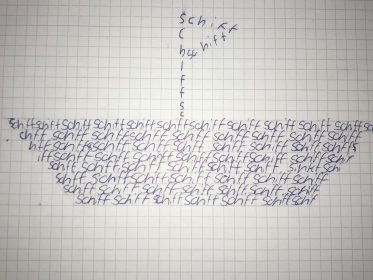 Schiff
c
h
schiff
i
f
f
s
c
schiff schiff schiff schiff schiff schiff schiff schiff schiff schiff schiff schiff sc
chiff schiff schiff schiff schiff schiff schiff schiff schiff schiff schiff
hiff schiff schiff schiff schiff schiff schiff schiff schiff schiffs
iff schiff schiff schiff schiff schiff schiff schiff schiff schif
schiff schiff schiff schiff schiff schiff sinkt schi
schiff schiff schiff schiff schiff schiff schiff schiff
schiff schiff schiff schiff schiff schiff schiff
schiff schiff schiff schiff schiff schif